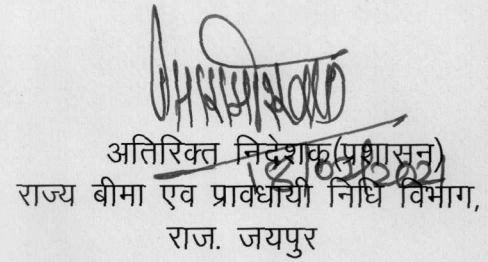 अतिरिक्त निदेशक(प्रशासन)
राज्य बीमा एव प्रावधायी निधि विभाग,
राज. जयपुर